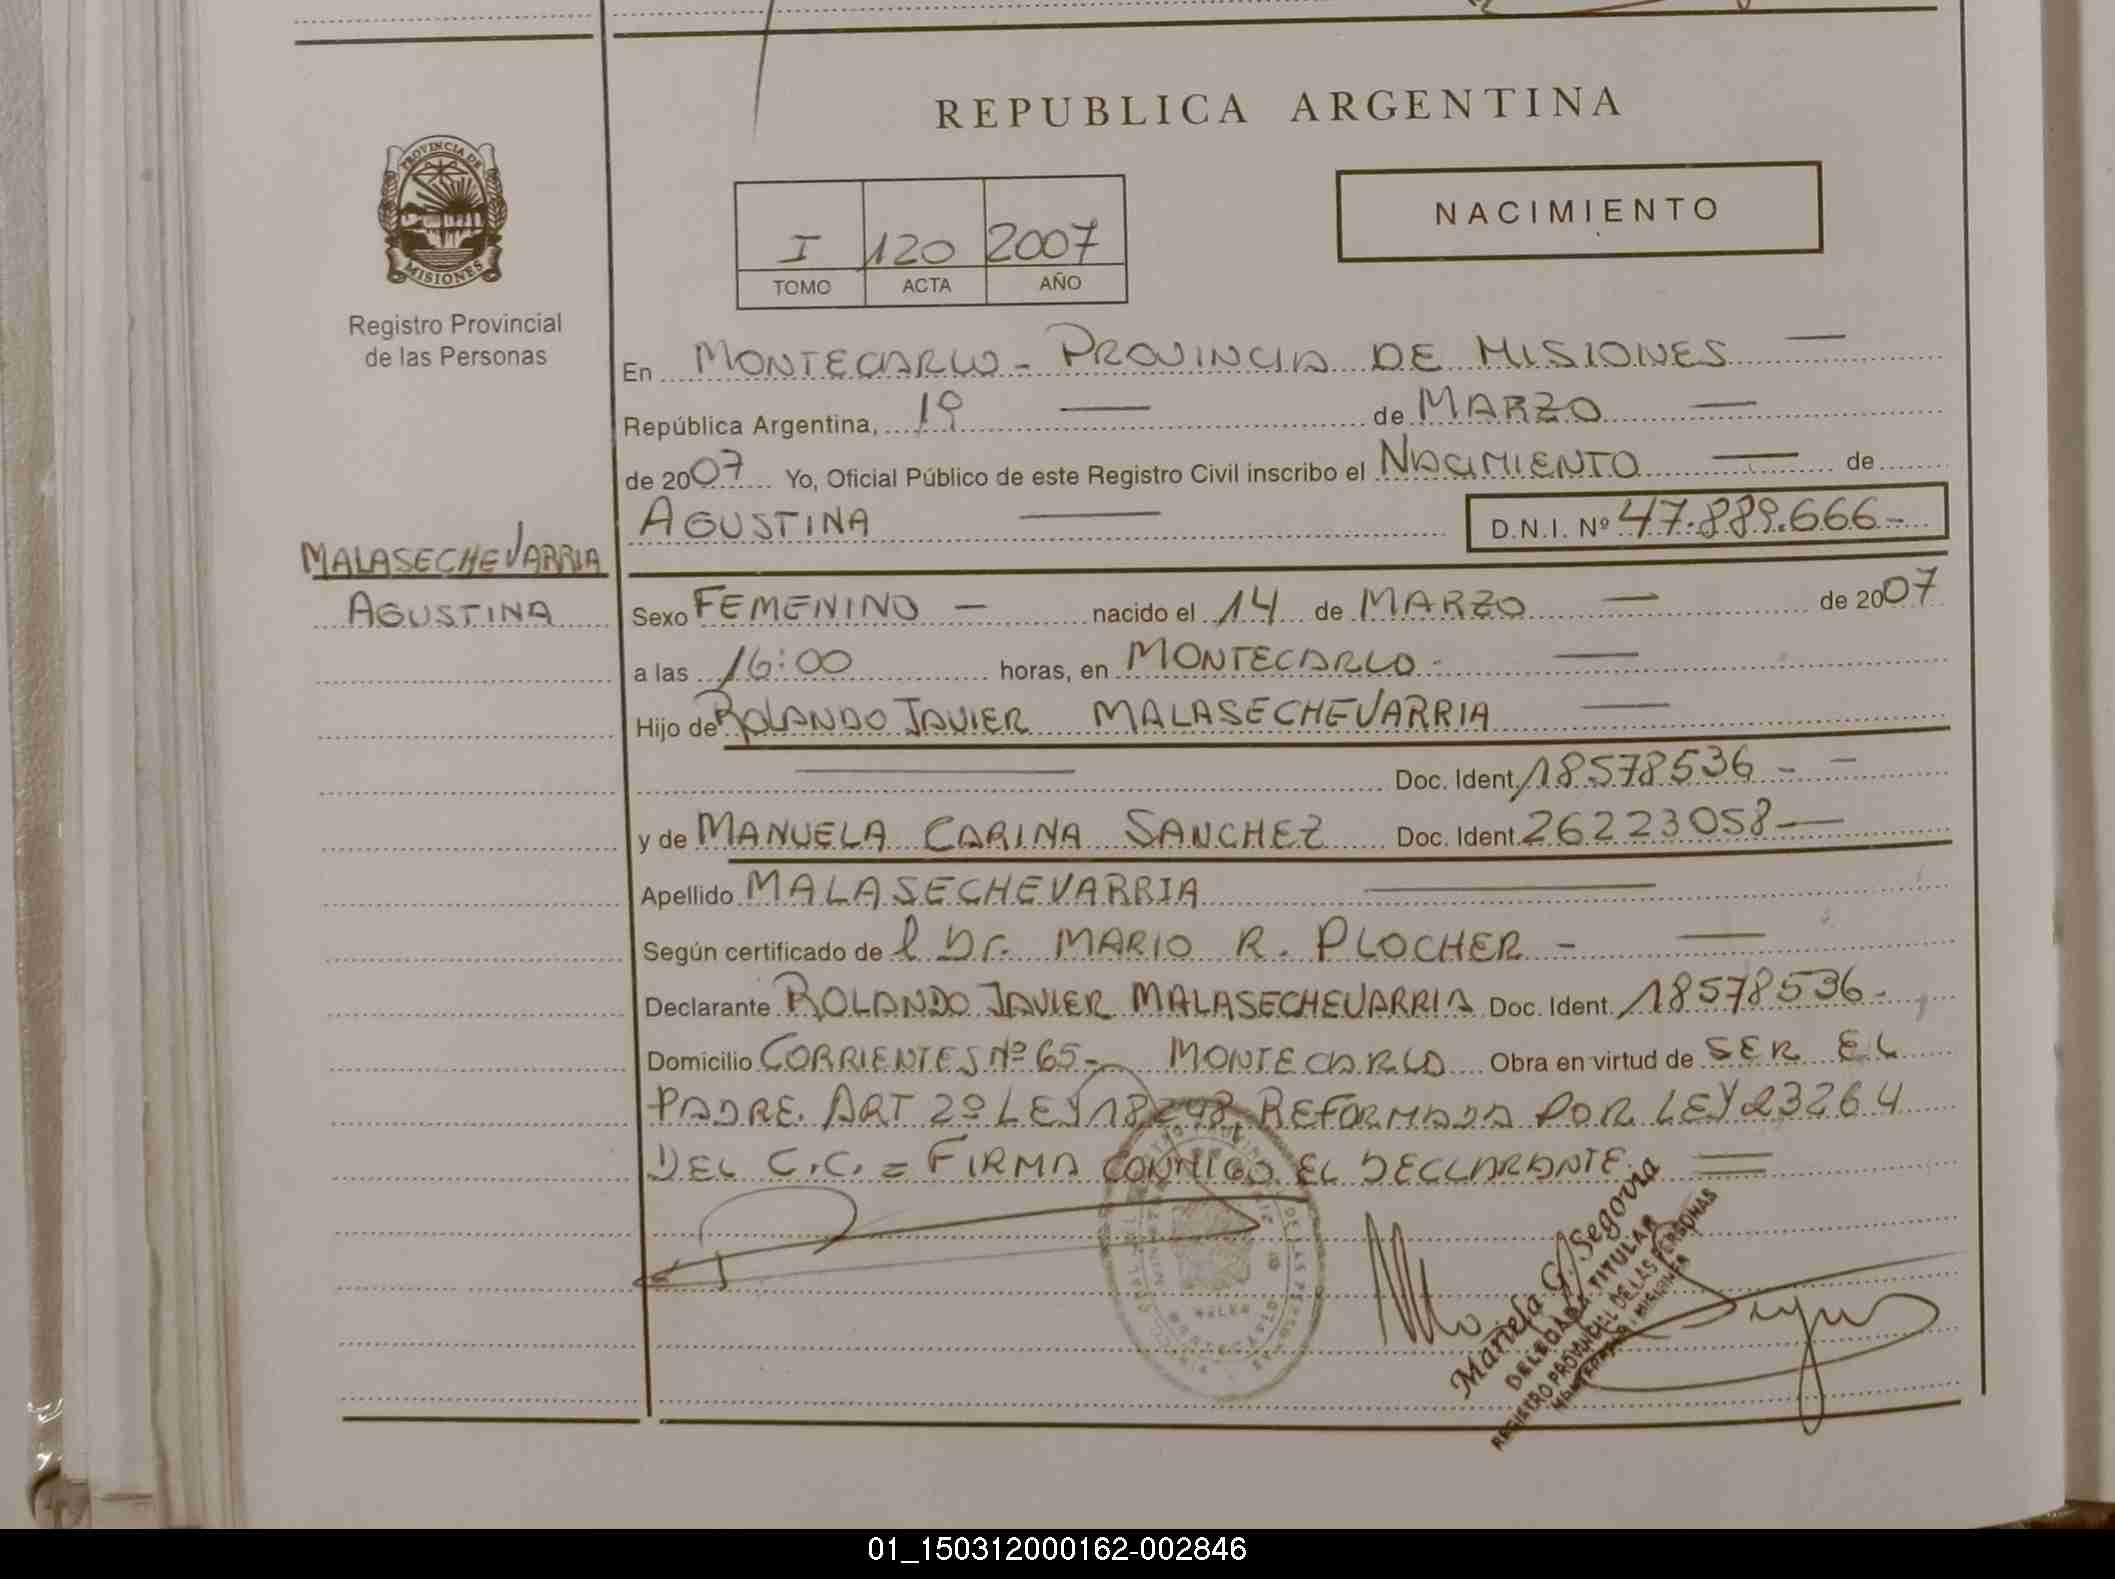 REPUBLICA ARGENTINA
PROVINCIA DE
MISIONES
Registro Provincial
de las Personas
NACIMIENTO
I 120 2007
TOMO ACTA AÑO
En MONTECARLO - PROVINCIA DE MISIONES
República Argentina, 19 de MARZO
de 2007 Yo, Oficial Público de este Registro Civil inscribo el NACIMIENTO de
AGUSTINA D.N.I. Nº 47.889.666-
MALASECHEVARRIA
AGUSTINA
Sexo FEMENINO - nacido el 14 de MARZO de 2007
a las 16:00 horas, en MONTECARLO -
Hijo de ROLANDO JAVIER MALASECHEVARRIA
Doc. Ident. 18578536 - -
y de MANUELA CARINA SANCHEZ Doc. Ident. 26223058 -
Apellido MALASECHEVARRIA
Según certificado de l Dr. MARIO R. PLOCHER -
Declarante ROLANDO JAVIER MALASECHEVARRIA Doc. Ident. 18578536 -
Domicilio CORRIENTES Nº 65 - MONTECARLO Obra en virtud de SER EL
PADRE. ART 2º LEY 18248 REFORMADA POR LEY 23264
DEL C.C. = FIRMA CONMIGO EL DECLARANTE
Mariela G. Segovia
DELEGADA TITULAR
REGISTRO PROVINCIAL DE LAS PERSONAS
01_150312000162-002846